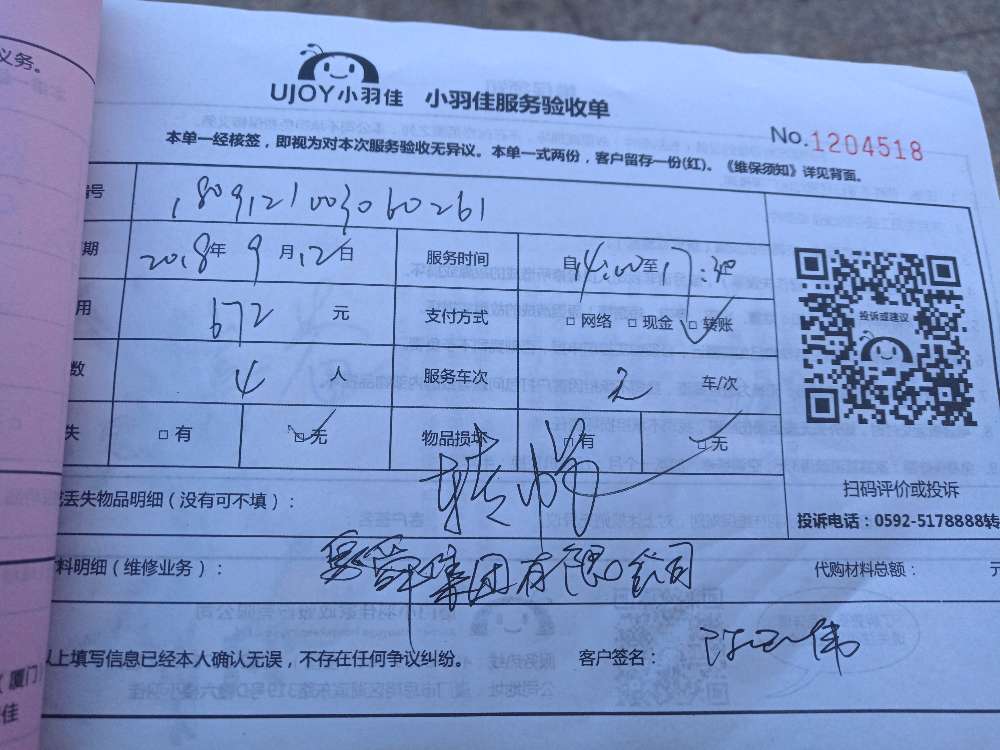 义务。
UJOY小羽佳 小羽佳服务验收单
No.1204518
本单一经核签，即视为对本次服务验收无异议。本单一式两份，客户留存一份(红)。《维保须知》详见背面。
号 1809121003060261
期 2018年9月12日 服务时间 自14:00至17:30
用 672 元 支付方式 □网络 □现金 □转账
数 4 人 服务车次 2 车/次
失 □有 □无 物品损坏 □有 □无
投诉或建议
扫码评价或投诉
投诉电话：0592-5178888转
丢失物品明细（没有可不填）：
料明细（维修业务）： 集团有限公司 代购材料总额：
上填写信息已经本人确认无误，不存在任何争议纠纷。 客户签名：
（厦门
佳